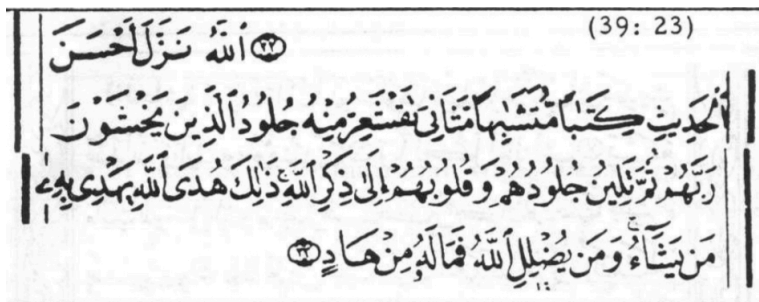 (39: 23)
۝٢٢ ٱللَّهُ نَزَّلَ أَحْسَنَ
ٱلْحَدِيثِ كِتَٰبًا مُّتَشَٰبِهًا مَّثَانِىَ تَقْشَعِرُّ مِنْهُ جُلُودُ ٱلَّذِينَ يَخْشَوْنَ
رَبَّهُمْ ثُمَّ تَلِينُ جُلُودُهُمْ وَقُلُوبُهُمْ إِلَىٰ ذِكْرِ ٱللَّهِ ذَٰلِكَ هُدَى ٱللَّهِ يَهْدِى بِهِۦ
مَن يَشَآءُ وَمَن يُضْلِلِ ٱللَّهُ فَمَا لَهُۥ مِنْ هَادٍ ۝٢٣